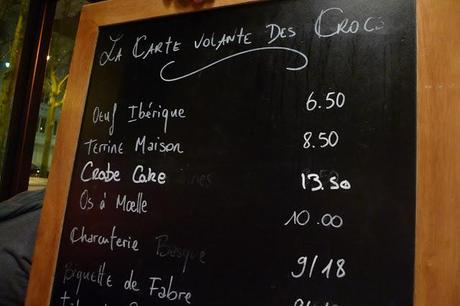 La Carte volante des Crocs
Oeuf Ibérique 6.50
Terrine Maison 8.50
Crabe Cake 13.50
Os à Moelle 10.00
Charcuterie Basque 9/18
Biquette de Fabre